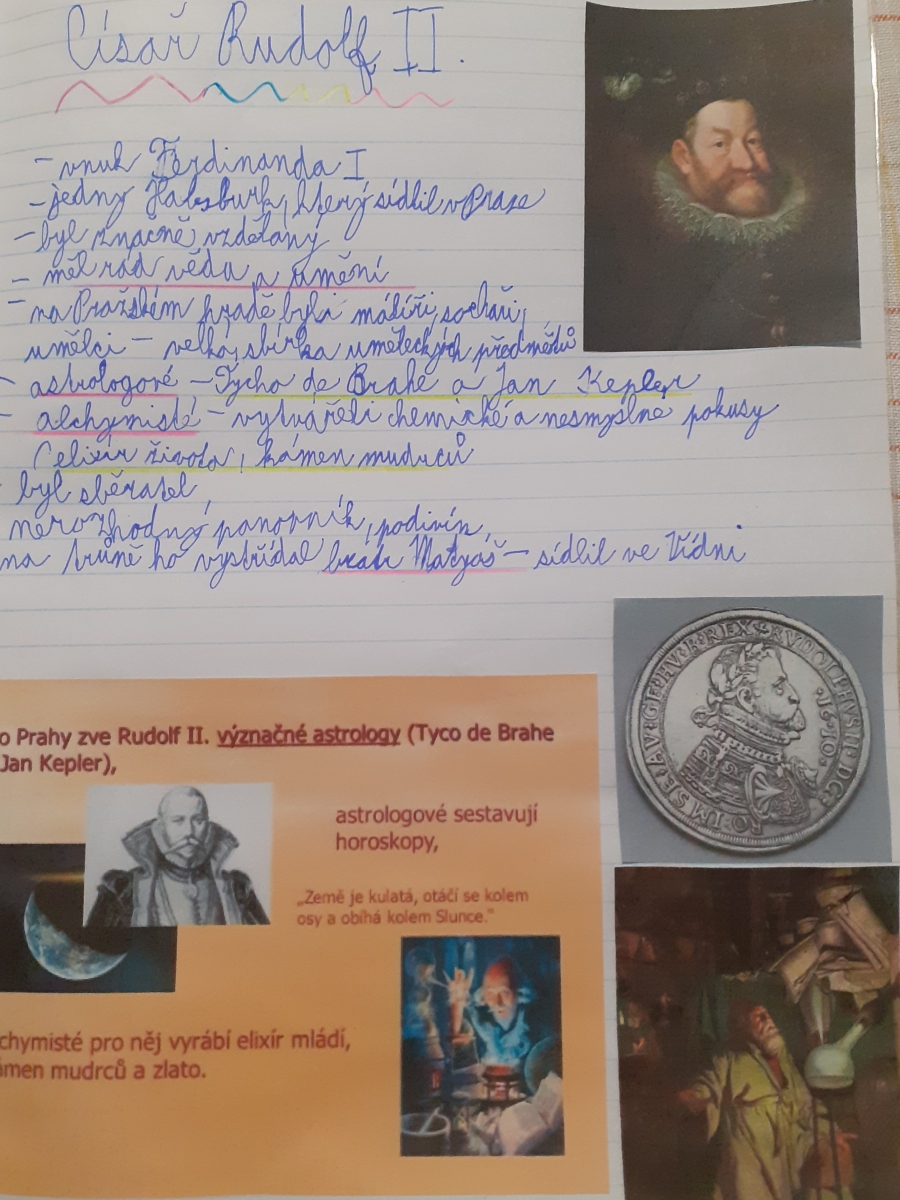 Císař Rudolf II.
- vnuk Ferdinanda I
- jediný Habsburk, který sídlil v Praze
- byl značně vzdělaný
- měl rád vědu a umění
- na Pražském hradě byli malíři, sochaři,
umělci - velká sbírka uměleckých předmětů
- astrologové - Tycho de Brahe a Jan Kepler
- alchymisté - vytvářeli chemické a nesmyslné pokusy
(elixír života, kámen mudrců
byl sběratel
nerozhodný panovník, podivín,
na trůně ho vystřídal bratr Matyáš - sídlil ve Vídni
o Prahy zve Rudolf II. význačné astrology (Tyco de Brahe
Jan Kepler),
astrologové sestavují
horoskopy,
„Země je kulatá, otáčí se kolem
osy a obíhá kolem Slunce."
chymisté pro něj vyrábí elixír mládí,
ámen mudrců a zlato.
RVDOLPHVS II DG
RO IM SE AV GE HV B REX
1610